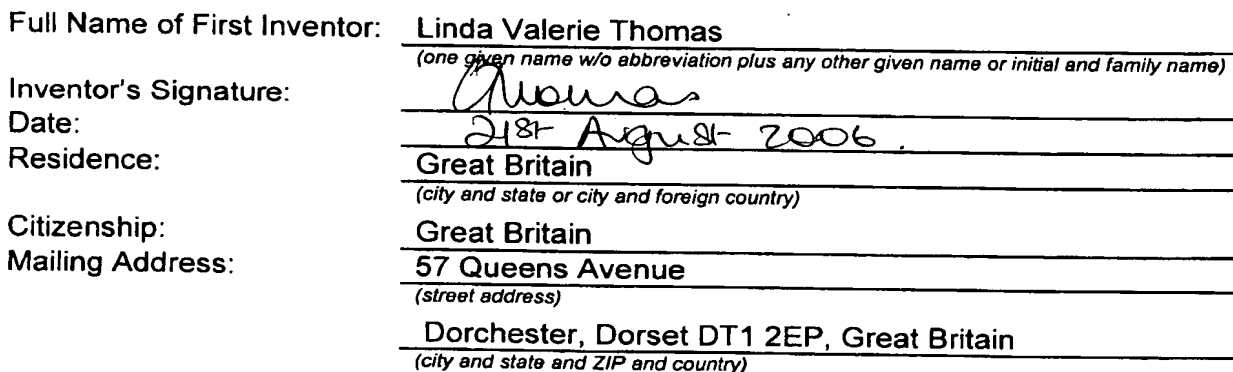 Full Name of First Inventor: Linda Valerie Thomas
(one given name w/o abbreviation plus any other given name or initial and family name)
Inventor's Signature: Thomas
Date: 21st August 2006.
Residence: Great Britain
(city and state or city and foreign country)
Citizenship: Great Britain
Mailing Address: 57 Queens Avenue
(street address)
Dorchester, Dorset DT1 2EP, Great Britain
(city and state and ZIP and country)